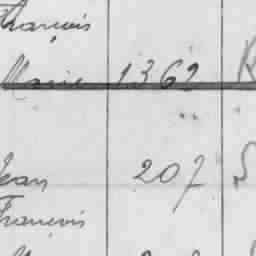 François
Marie 1362
Jean 207 S
François